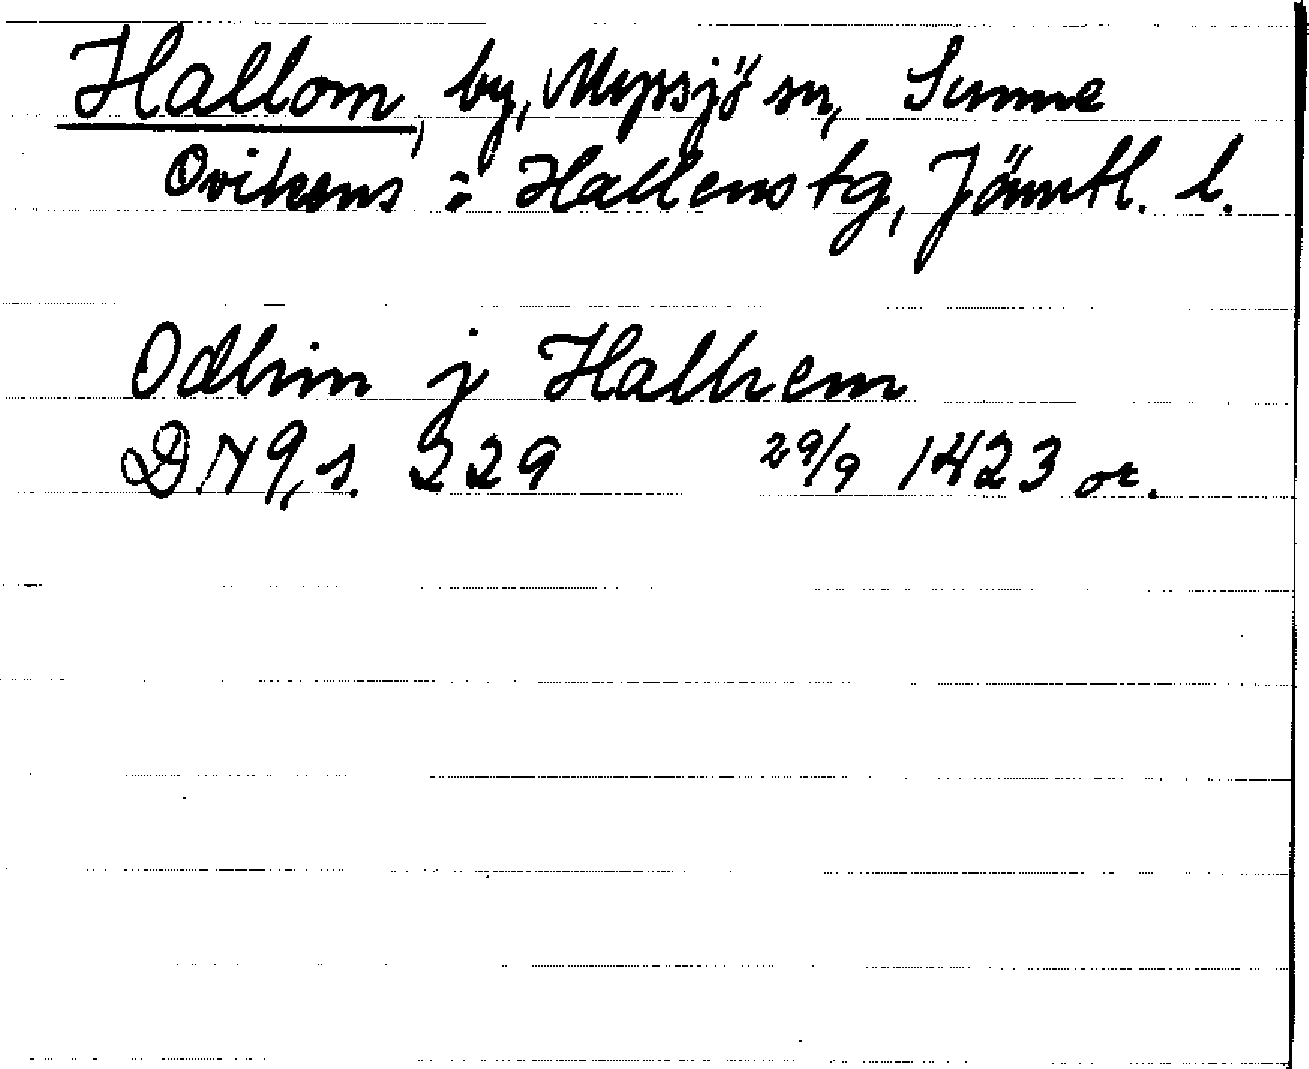 Hallom, by, Myssjö sn, Sunne
Ovikens o Hallens tg, Jämtl. l.
Odhin j Halhem
DN 9, s. 229 29/9 1423 or.